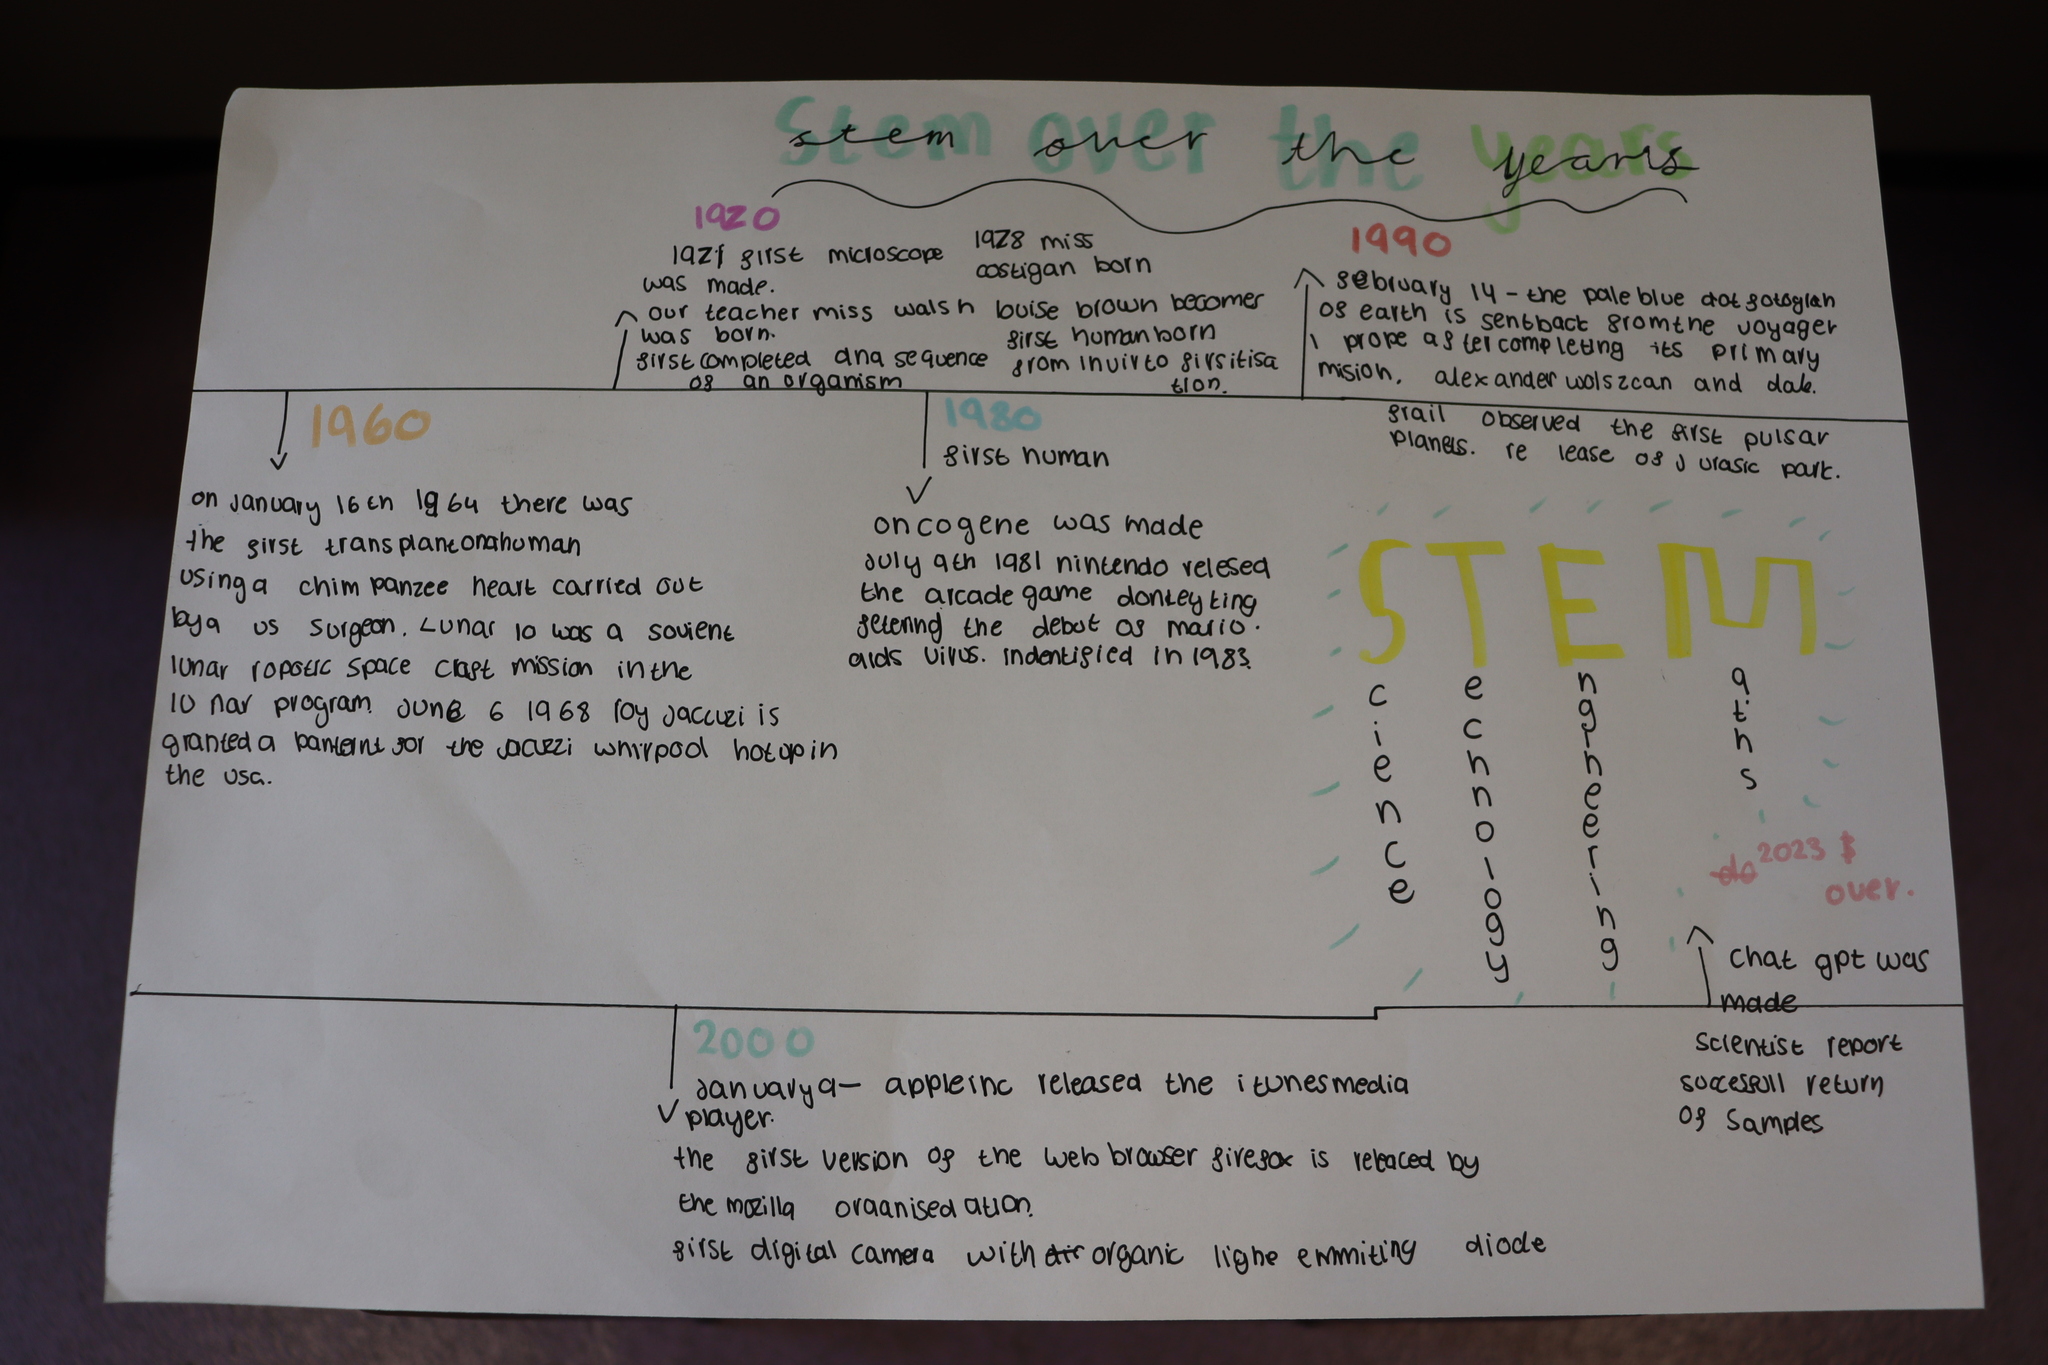 stem over the years
stem over the years
1920
1921 first microscope
was made.
our teacher miss walsh
was born.
first completed dna sequence
of an organism
1928 miss
costigan born
louise brown becomer
first human born
from invirto firsitisa
tion.
1990
february 14 - the pale blue dot fotoglah
of earth is sentback from the voyager
1 prope after completing its primary
mision. alexander wolszcan and dale.
frail observed the first pulsar
planets. re lease of jurasic park.
1960
on January 16th 1964 there was
the first transplantonahuman
using a chimpanzee heart carried out
by a us surgeon. Lunar 10 was a sovient
lunar ropotic space claft mission in the
10 nar program. June 6 1968 roy jaccuzi is
granted a panternt for the jacuzzi whirpool hotup in
the usa.
1980
first human
oncogene was made
July 9th 1981 nintendo relesed
the arcade game donkey ting
fetering the debut of mario.
aids virus. indentified in 1983.
STEM
cience
echnology
ngineering
aths
do 2023 $
over.
chat gpt was
made
scientist report
succesfull return
of samples
2000
January 9- apple inc released the itunes media
player.
the first version of the web browser firefox is releaced by
the mozilla oraanised ation.
first digital camera with organic lighe emmiting diode